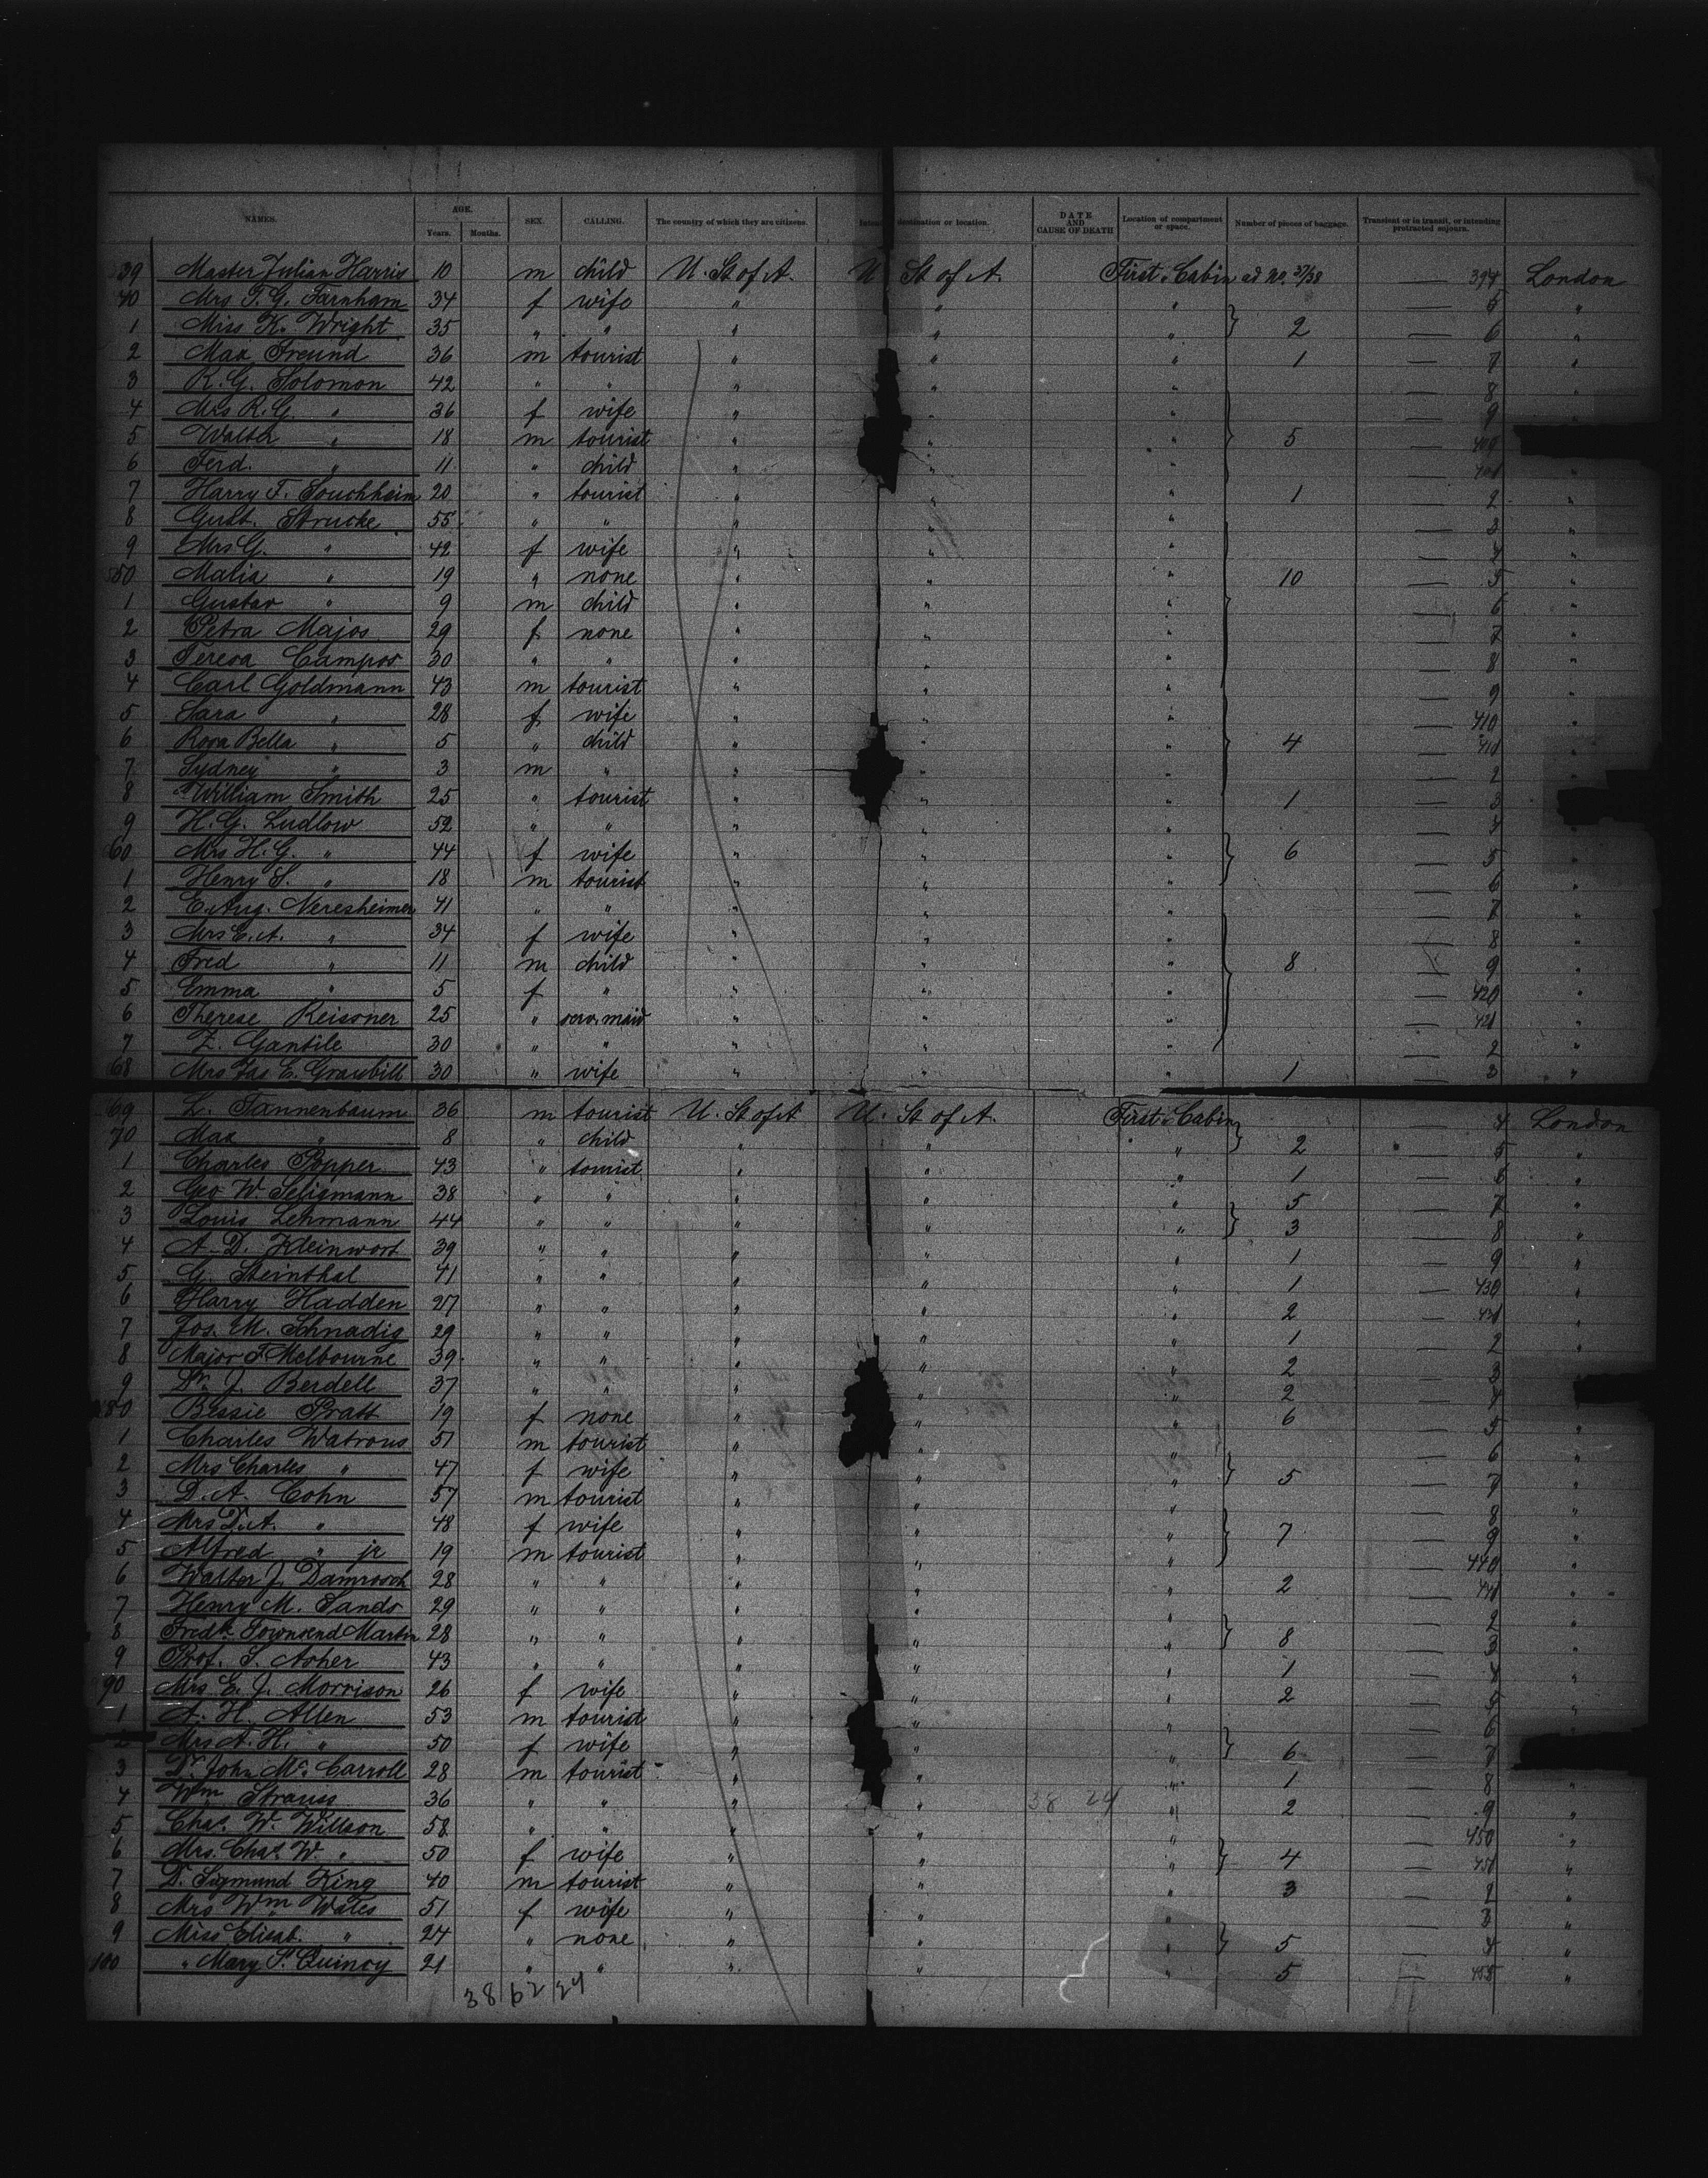 NAMES. AGE. Years. Months. SEX. CALLING. The country of which they are citizens. destination or location. DATE AND CAUSE OF DEATH Location of compartment or space. Number of pieces of baggage. Transient or in transit, or intending protracted sojourn.
39 Master Julian Harris 10 m child U. St of A. U St of A. First Cabin ad no. 37/38 — 394 London
40 Mrs F. G. Farnham 34 f wife " " " — 5 "
1 Miss K. Wright 35 " " " " " } 2 — 6 "
2 Max Freund 36 m tourist " " " 1 — 7 "
3 R. G. Solomon 42 " " " " " — 8 "
4 Mrs R. G. " 36 f wife " " " — 9 "
5 Walter " 18 m tourist " " " } 5 — 400
6 Ferd. " 11 " child " " " — 401 "
7 Harry F. Souchheim 20 " tourist " " " 1 — 2 "
8 Gust. Strucke 55 " " " " " — 3 "
9 Mrs G. " 42 f wife " " " — 4 "
50 Malia " 19 " none " " " 10 — 5 "
1 Gustav " 9 m child " " " — 6 "
2 Petra Majos 29 f none " " " — 7 "
3 Teresa Campos 30 " " " " " — 8 "
4 Carl Goldmann 43 m tourist " " " — 9 "
5 Sara " 28 f wife " " " — 410 "
6 Rosa Bella " 5 " child " " " } 4 — 411 "
7 Sydney " 3 m " " " " — 2 "
8 William Smith 25 " tourist " " " 1 — 3
9 H. G. Ludlow 52 " " " " " — 4 "
60 Mrs H. G. " 44 f wife " " " } 6 — 5 "
1 Henry S. " 18 m tourist " " " — 6 "
2 E. Aug. Neresheimer 41 " " " " " — 7 "
3 Mrs E. A. " 34 f wife " " " — 8 "
4 Fred " 11 m child " " " } 8 — 9 "
5 Emma " 5 f " " " " — 420 "
6 Therese Reissner 25 " serv. maid " " " — 421 "
7 Z. Gantile 30 " " " " " — 2 "
68 Mrs Jas E. Graybill 30 " wife " " " 1 — 3 "
69 L. Tannenbaum 36 m tourist U. St of A U. St of A. First Cabin — 4 London
70 Max " 8 " child " " " } 2 — 5 "
1 Charles Popper 43 " tourist " " " 1 — 6 "
2 Geo W. Seligmann 38 " " " " 5 — 7 "
3 Louis Lehmann 44 " " " " " } 3 — 8 "
4 A. D. Kleinwort 39 " " " " " 1 — 9 "
5 G. Steinthal 41 " " " " " 1 — 430 "
6 Harry Hadden 27 " " " " " 2 — 431 "
7 Jos. M. Schnadig 29 " " " " " 1 — 2 "
8 Major F Melbourne 39 " " " " " 2 — 3
9 Dr. J. Berdell 37 " " " " 2 — 4
80 Bessie Pratt 19 f none " " " 6 — 5 "
1 Charles Watrous 51 m tourist " " " — 6 "
2 Mrs Charles " 47 f wife " " " } 5 — 7 "
3 D. A. Cohn 57 m tourist " " " — 8 "
4 Mrs D. A. " 48 f wife " " " } 7 — 9 "
5 Alfred " jr 19 m tourist " " " — 440 "
6 Walter J. Damrosch 28 " " " " " 2 — 441 "
7 Henry M. Sands 29 " " " " " — 2 "
8 Fredk. Townsend Martin 28 " " " " " } 8 — 3 "
9 Prof. S. Asher 43 " " " " " 1 — 4 "
90 Mrs E. J. Morrison 26 f wife " " " 2 — 5 "
1 A. H. Allen 53 m tourist " " " — 6
2 Mrs A. H. " 50 f wife " " } 6 — 7
3 Dr. John Mc. Carroll 28 m tourist " " " 1 — 8 "
4 Wm Strauss 36 " " " " 38 24 " 2 — 9 "
5 Chas. W. Willson 58 " " " " " — 450 "
6 Mrs. Chas. W. " 50 f wife " " " } 4 — 451 "
7 Dr. Sigmund King 40 m tourist " " " 3 — 2 "
8 Mrs Wm Wates 51 f wife " " " — 3 "
9 Miss Elisab. " 24 " none " " " } 5 — 4 "
100 " Mary S. Quincy 21 " " " " " 5 — 455 "
38 62 24